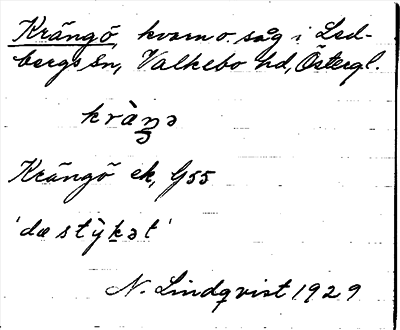 Krängö, kvarn o. såg i Led-
bergs sn, Valkebo hd, Östergl.
kràŋ̮ə
Krängö ek, G55
'dæ stỳḵət'
N. Lindqvist 1929